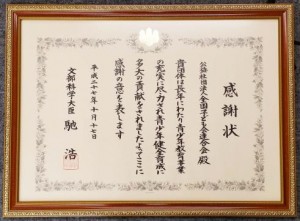 感謝状
公益社団法人全国子ども会連合会 殿
貴団体は長年にわたり青少年教育事業
の充実に尽力され青少年健全育成に
多大の貢献をされましたのでここに
感謝の意を表します
平成二十七年十月十七日
文部科学大臣 馳 浩